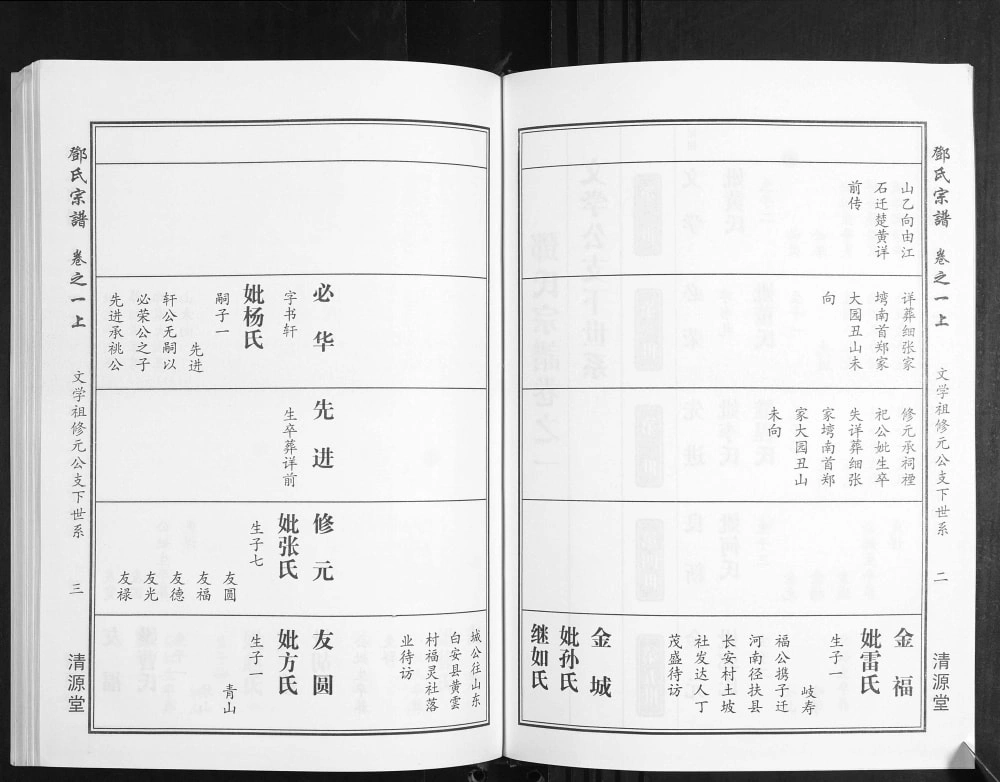 鄧氏宗譜
卷之一上
文学祖修元公支下世系
二
清源堂
山乙向由江
石迁楚黄详
前传
详葬细张家
塆南首郑家
大园丑山未
向
修元承祠禋
祀公妣生卒
失详葬细张
家塆南首郑
家大园丑山
未向
金福
妣雷氏
生子一
岐寿
福公携子迁
河南径扶县
长安村土坡
社发达人丁
茂盛待访
金城
妣孙氏
继如氏
城公往山东
白安县黄雲
村福灵社落
业待访
必华
字书轩
妣杨氏
嗣子一
先进
轩公无嗣以
必荣公之子
先进承祧公
先进
生卒葬详前
修元
妣张氏
生子七
友圆
友福
友德
友光
友禄
友圆
妣方氏
生子一
青山
鄧氏宗譜
卷之一上
文学祖修元公支下世系
三
清源堂